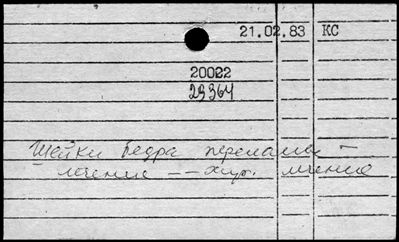 21.02.83 КС
20022
23364
Шейки бедра переломы –
лечение -- хир. лечение